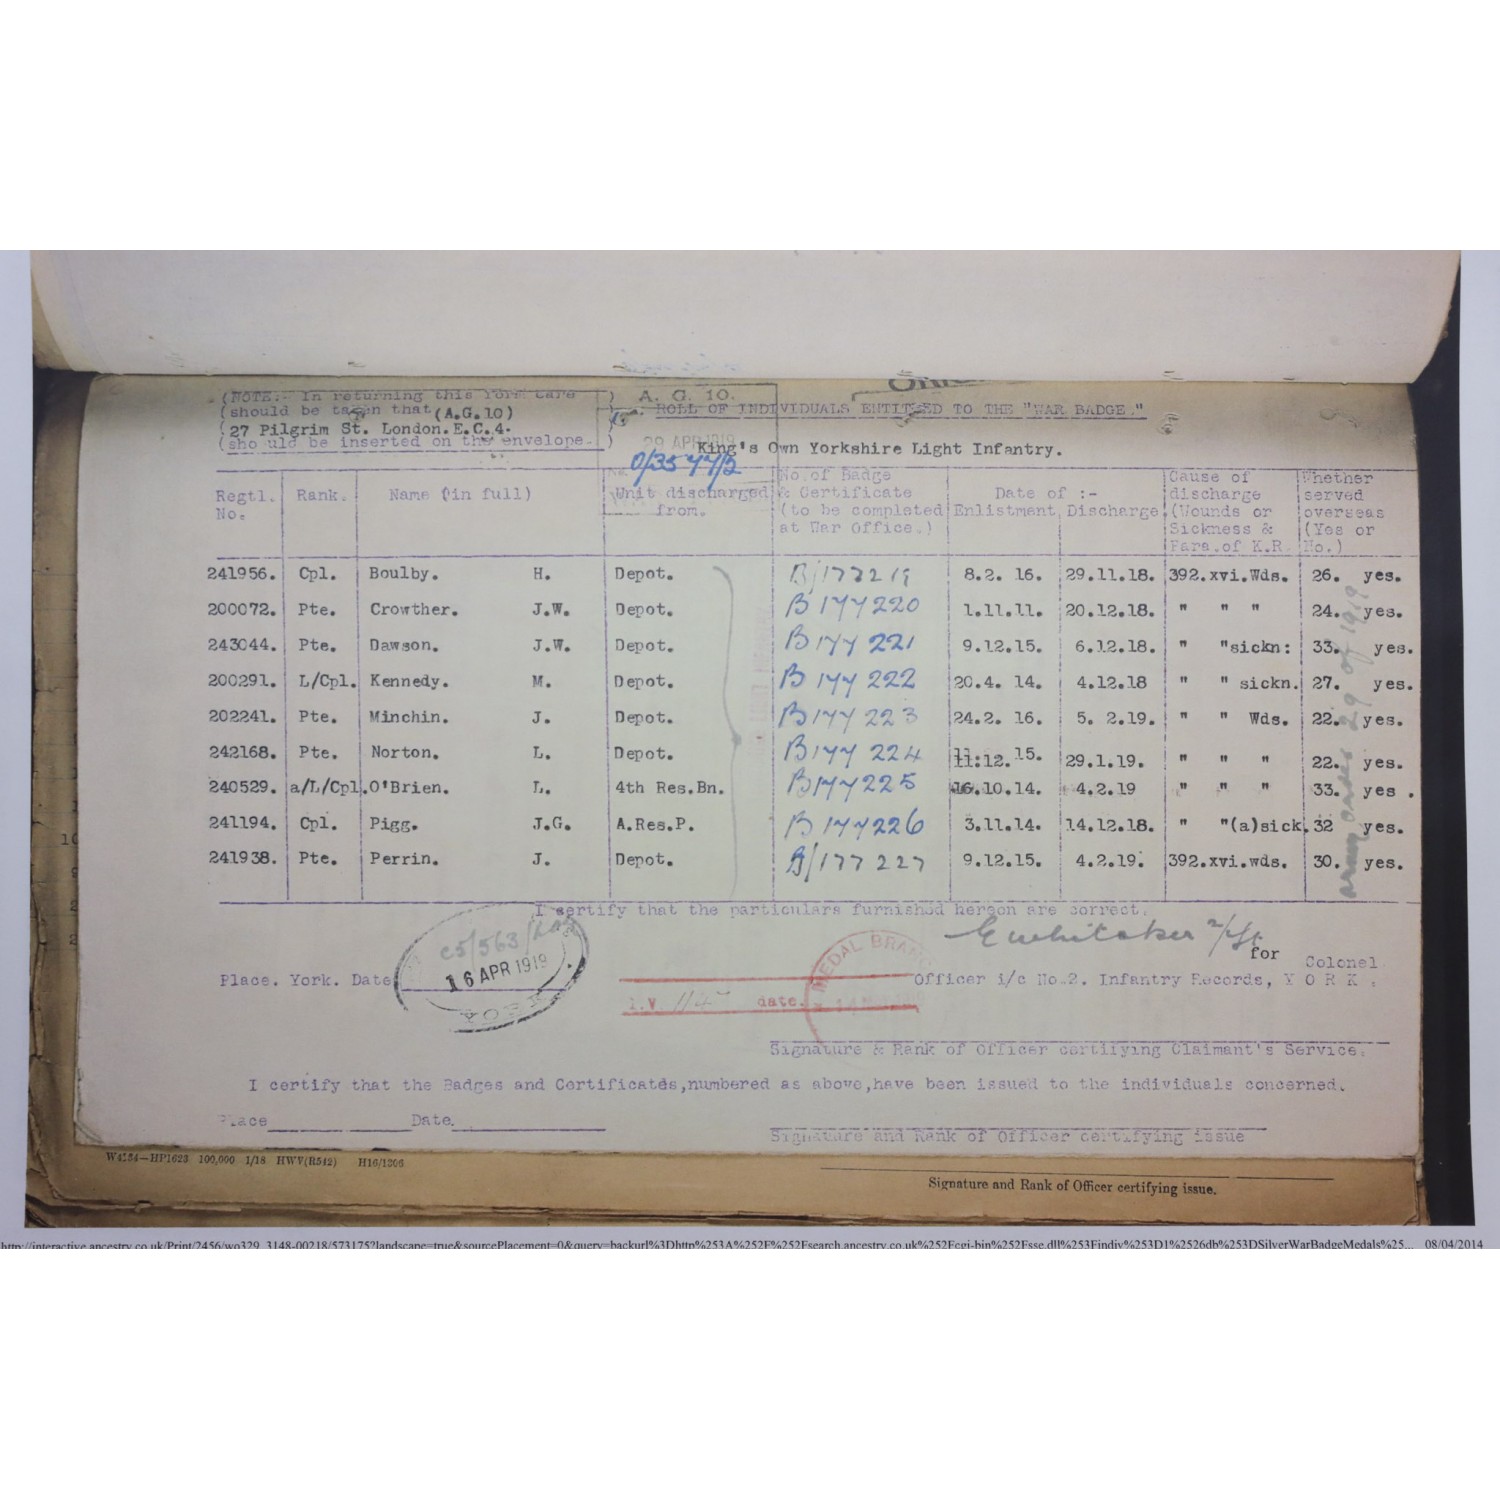 (NOTE:- In returning this form care )
(should be taken that (A.G.10)
(27 Pilgrim St. London. E.C.4.
(should be inserted on the envelope. )
A. G. 10.
29 APR 1919
0/3577/2
ROLL OF INDIVIDUALS ENTITLED TO THE "WAR BADGE."
King's Own Yorkshire Light Infantry.
Regtl. No. Rank. Name (in full) Unit discharged from. No. of Badge & Certificate (to be completed at War Office.) Date of :- Enlistment Discharge Cause of discharge (Wounds or Sickness & Para. of K.R. Whether served overseas (Yes or No.)
241956. Cpl. Boulby. H. Depot. B/177219 8.2. 16. 29.11.18. 392.xvi.Wds. 26. yes.
200072. Pte. Crowther. J.W. Depot. B 177220 1.11.11. 20.12.18. " " " 24. yes.
243044. Pte. Dawson. J.W. Depot. B 177 221 9.12.15. 6.12.18. " "sickn: 33. yes.
200291. L/Cpl. Kennedy. M. Depot. B 177 222 20.4. 14. 4.12.18 " " sickn. 27. yes.
202241. Pte. Minchin. J. Depot. B 177 223 24.2. 16. 5. 2.19. " " Wds. 22. yes.
242168. Pte. Norton. L. Depot. B 177 224 11:12. 15. 29.1.19. " " " 22. yes.
240529. a/L/Cpl. O'Brien. L. 4th Res.Bn. B 177225 16.10.14. 4.2.19 " " " 33. yes .
241194. Cpl. Pigg. J.G. A.Res.P. B 177226 3.11.14. 14.12.18. " "(a)sick. 32 yes.
241938. Pte. Perrin. J. Depot. B/177 227 9.12.15. 4.2.19. 392.xvi.wds. 30. yes.
army order 29 of 1919
I certify that the particulars furnished hereon are correct.
E Whitaker 2/Lt
for Colonel
Place. York. Date
C5/563/
16 APR 1919
YORK
I.V. 1145 date.
MEDAL BRANC
Officer i/c No.2. Infantry Records, Y O R K .
Signature & Rank of Officer certifying Claimant's Service.
I certify that the Badges and Certificates,numbered as above,have been issued to the individuals concerned.
Place Date.
Signature and Rank of Officer certifying issue
W4254—HP1623 100,000 1/18 HWV(R542) H16/1306
Signature and Rank of Officer certifying issue.
http://interactive.ancestry.co.uk/Print/2456/wo329_3148-00218/573175?landscape=true&sourcePlacement=0&query=backurl%3Dhttp%253A%252F%252Fsearch.ancestry.co.uk%252Fcgi-bin%252Fsse.dll%253Findiv%253D1%2526db%253DSilverWarBadgeMedals%25... 08/04/2014